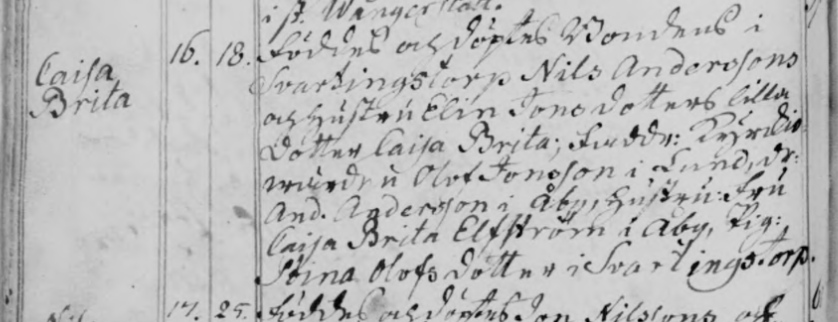 i st. Wångerstad.
Caisa 16. 18. Föddes och döptes Bondens i
Brita Svartingstorp Nils Anderssons
och Hustru Elin Jons dotters lilla
dotter Caisa Brita; Faddr: Kyrckio
wärden Olof Jonsson i Lund, dr:
And. Andersson i Åby, Hustru: Fru
Caisa Brita Elfström i Åby, Pig:
Stina Olofs dotter i Svartingstorp.
17. 25. Föddes och döptes Jon Nilssons